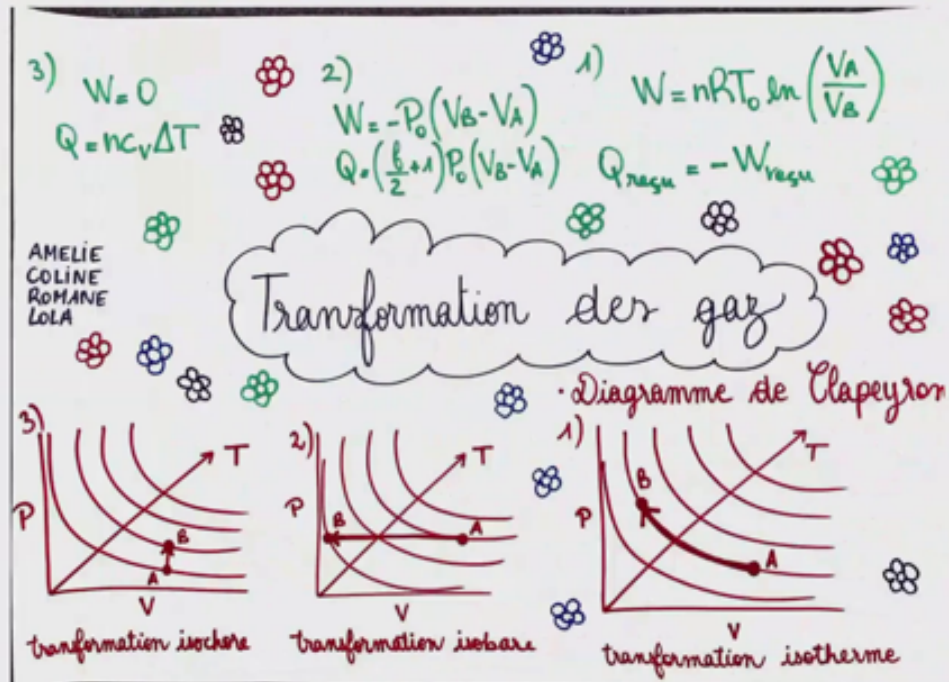 3)
W = 0
Q = nc_vΔT
2)
W = -P₀(V_B - V_A)
Q = (f/2 + 1)P₀(V_B - V_A)
1)
W = nRT₀ ln(V_A/V_B)
Q_reçu = -W_reçu
AMELIE
COLINE
ROMANE
LOLA
Tranzformation des gaz
· Diagramme de Clapeyron
3)
T
P
B
A
V
tranformation isochore
2)
T
P
B
A
V
tranformation isobare
1)
T
P
B
A
V
tranformation isotherme